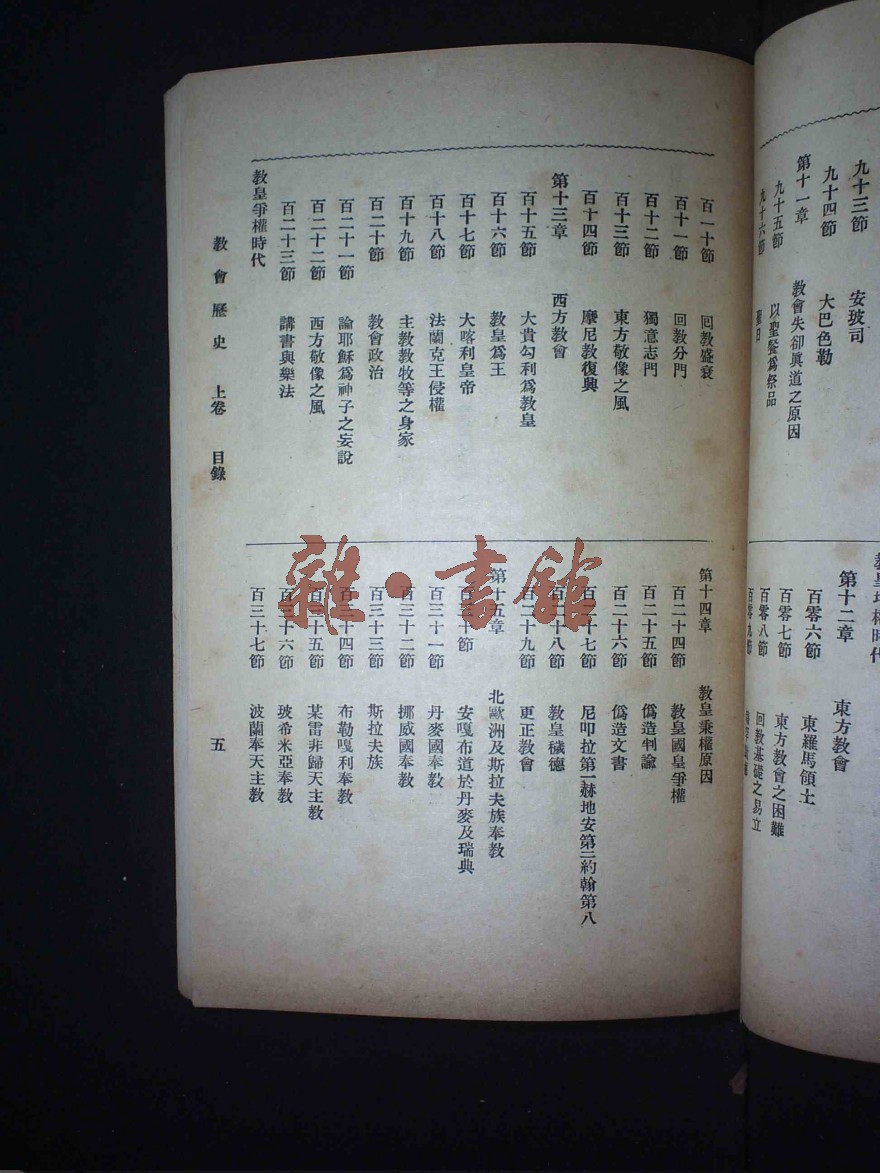 九十三節　安玻司
九十四節　大巴色勒
第十一章　教會失卻眞道之原因
九十五節　以聖餐爲祭品
九十六節
教皇爭權時代
第十二章　東方教會
百零六節　東羅馬領土
百零七節　東方教會之困難
百零八節　回教基礎之易立
百零九節
百一十節　回教盛衰
百十一節　回教分門
百十二節　獨意志門
百十三節　東方敬像之風
百十四節　摩尼教復興
第十三章　西方教會
百十五節　大貴勾利爲教皇
百十六節　教皇爲王
百十七節　大喀利皇帝
百十八節　法蘭克王侵權
百十九節　主教教牧等之身家
百二十節　教會政治
百二十一節　論耶穌爲神子之妄說
百二十二節　西方敬像之風
百二十三節　講書與樂法
教皇爭權時代
第十四章　教皇秉權原因
百二十四節　教皇國皇爭權
百二十五節　僞造判論
百二十六節　僞造文書
百二十七節　尼叩拉第一赫地安第二約翰第八
百二十八節　教皇穢德
百二十九節　更正教會
第十五章　北歐洲及斯拉夫族奉教
百三十節　安嘎布道於丹麥及瑞典
百三十一節　丹麥國奉教
百三十二節　挪威國奉教
百三十三節　斯拉夫族
百三十四節　布勒嘎利奉教
百三十五節　某雷非歸天主教
百三十六節　玻希米亞奉教
百三十七節　波蘭奉天主教
教會歷史　上卷　目錄
五
雜·書館